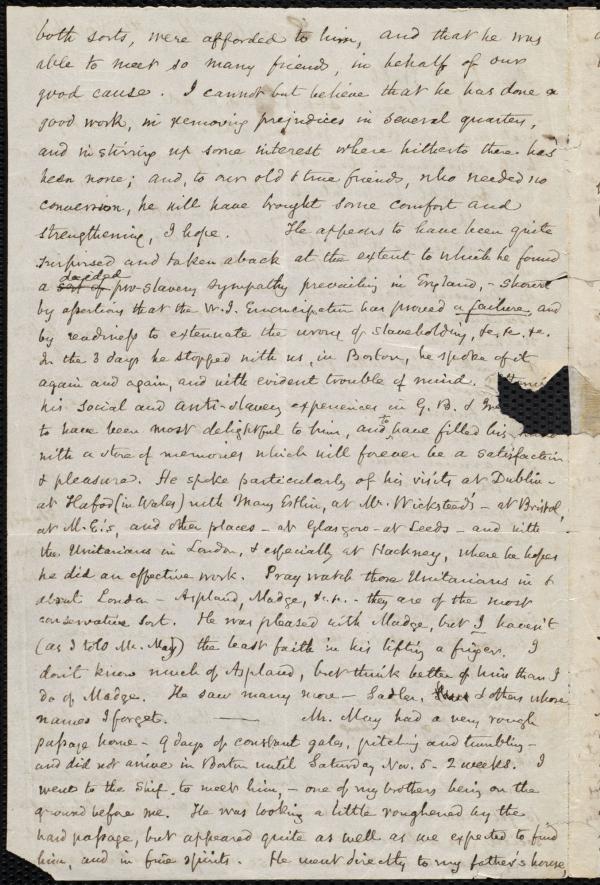 both sorts, were afforded to him, and that he was
able to meet so many friends, in behalf of our
good cause. I cannot but believe that he has done a
good work, in removing prejudices in several quarters,
and in stirring up some interest where hitherto there has
been none; and, to our old & true friends, who needed no
conversion, he will have brought some comfort and
strengthening, I hope. He appears to have been quite
surprised and taken aback at the extent to which he found
a decided pro-slavery sympathy prevailing in England, - shown
by assertions that the W. I. Emancipation has proved a failure, and
by readiness to extenuate the wrong of slaveholding, &c. &c. &c.
In the 3 days he stopped with us, in Boston, he spoke of it
again and again, and with evident trouble of mind.
his social and anti-slavery experiences in G. B. &
to have been most delightful to him, and to have filled his
with a store of memories which will forever be a satisfaction
& pleasure. He spoke particularly of his visits at Dublin -
at Hafod (in Wales) with Mary Estlin, at Mr. Wicksteed's - at Bristol,
at M. E.'s, and other places - at Glasgow - at Leeds - and with
the Unitarians in London, & especially at Hackney, where he hopes
he did an effective work. Pray watch those Unitarians in &
about London - Aspland, Madge, &c. - they are of the most
conservative sort. He was pleased with Madge, but I haven't
(as I told Mr. May) the least faith in his lifting a finger. I
don't know much of Aspland, but think better of him than I
do of Madge. He saw many more - Sadler, & others whose
names I forget. —— Mr. May had a very rough
passage home - 9 days of constant gales, pitching and tumbling -
and did not arrive in Boston until Saturday Nov. 5 - 2 weeks. I
went to the ship to meet him, - one of my brothers being on the
ground before me. He was looking a little roughened by the
hard passage, but appeared quite as well as we expected to find
him, and in fine spirits. He went directly to my father's house,